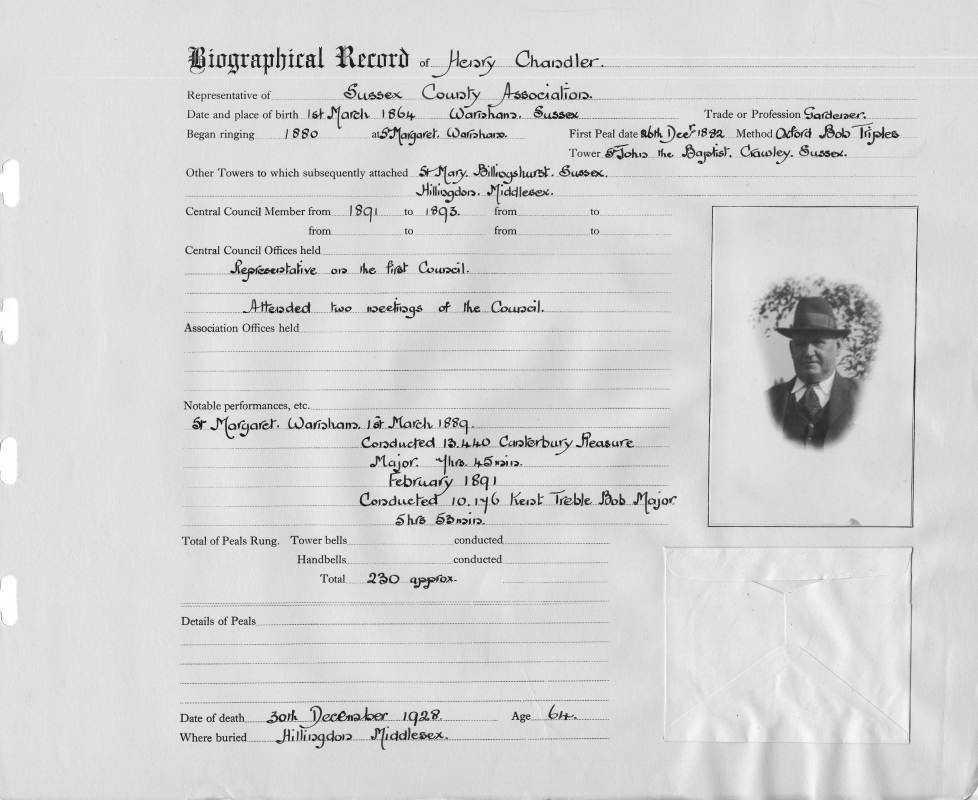 Biographical Record of Henry Chandler.
Representative of Sussex County Association.
Date and place of birth 1st March 1864 Warnham. Sussex Trade or Profession Gardener.
Began ringing 1880 at St Margaret. Warnham. First Peal date 26th Decr 1882 Method Oxford Bob Triples
Tower St John the Baptist. Crawley. Sussex.
Other Towers to which subsequently attached St Mary. Billingshurst. Sussex.
Hillingdon. Middlesex.
Central Council Member from 1891 to 1893. from to
from to from to
Central Council Offices held
Representative on the first Council.
Attended two meetings of the Council.
Association Offices held
Notable performances, etc.
St Margaret. Warnham. 1st March 1889.
Conducted 13.440 Canterbury Pleasure
Major. 7hrs. 45mins.
February 1891
Conducted 10.176 Kent Treble Bob Major.
5hrs 53mins.
Total of Peals Rung. Tower bells conducted
Handbells conducted
Total 230 approx.
Details of Peals
Date of death 30th December 1928. Age 64.
Where buried Hillingdon Middlesex.